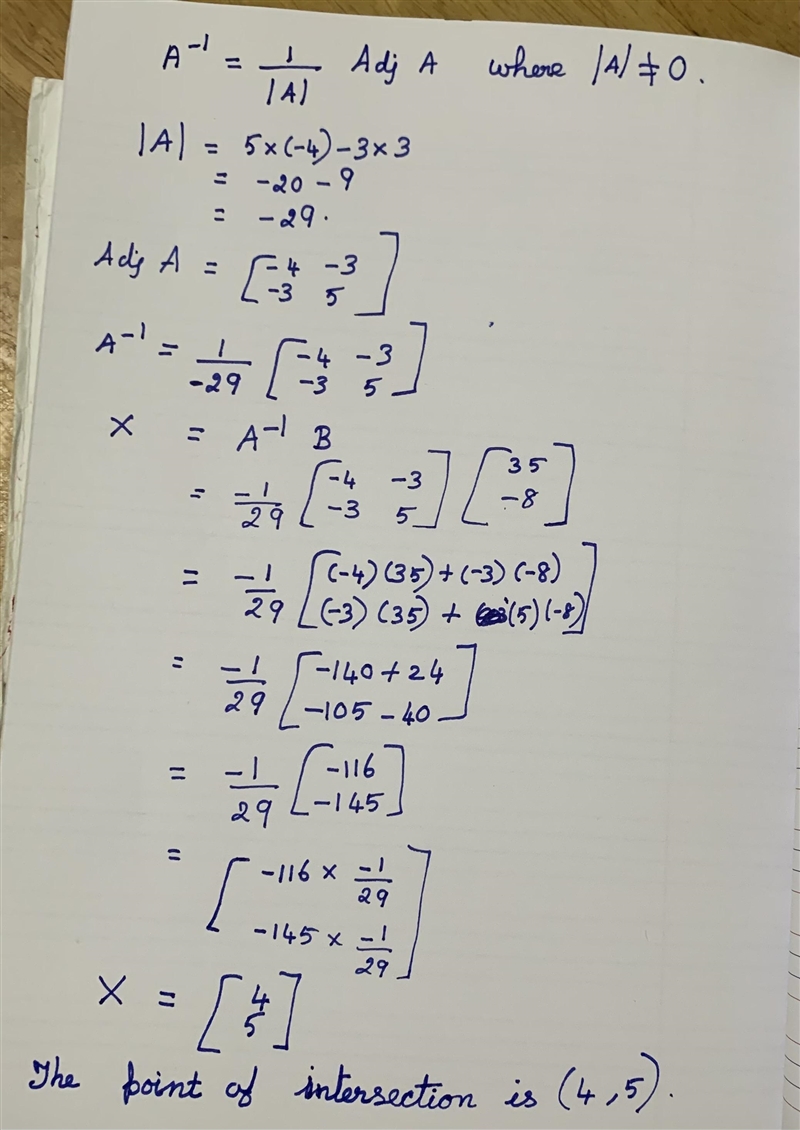 A⁻¹ = 1/|A| Adj A where |A| ≠ 0.
|A| = 5×(-4)-3×3
= -20 - 9
= -29.
Adj A = [-4 -3
-3 5]
A⁻¹ = 1/-29 [-4 -3
-3 5]
X = A⁻¹ B
= -1/29 [-4 -3
-3 5] [35
-8]
= -1/29 [(-4)(35)+(-3)(-8)
(-3)(35) + (5)(-8)]
= -1/29 [-140+24
-105-40]
= -1/29 [-116
-145]
= [-116 × -1/29
-145 × -1/29]
X = [4
5]
The point of intersection is (4,5).